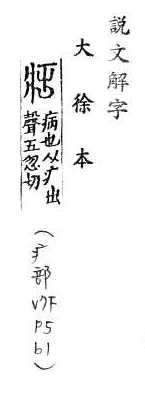 説文解字
大徐本
病也从疒出
聲五忽切
（疒部 V7下 P5 b1）